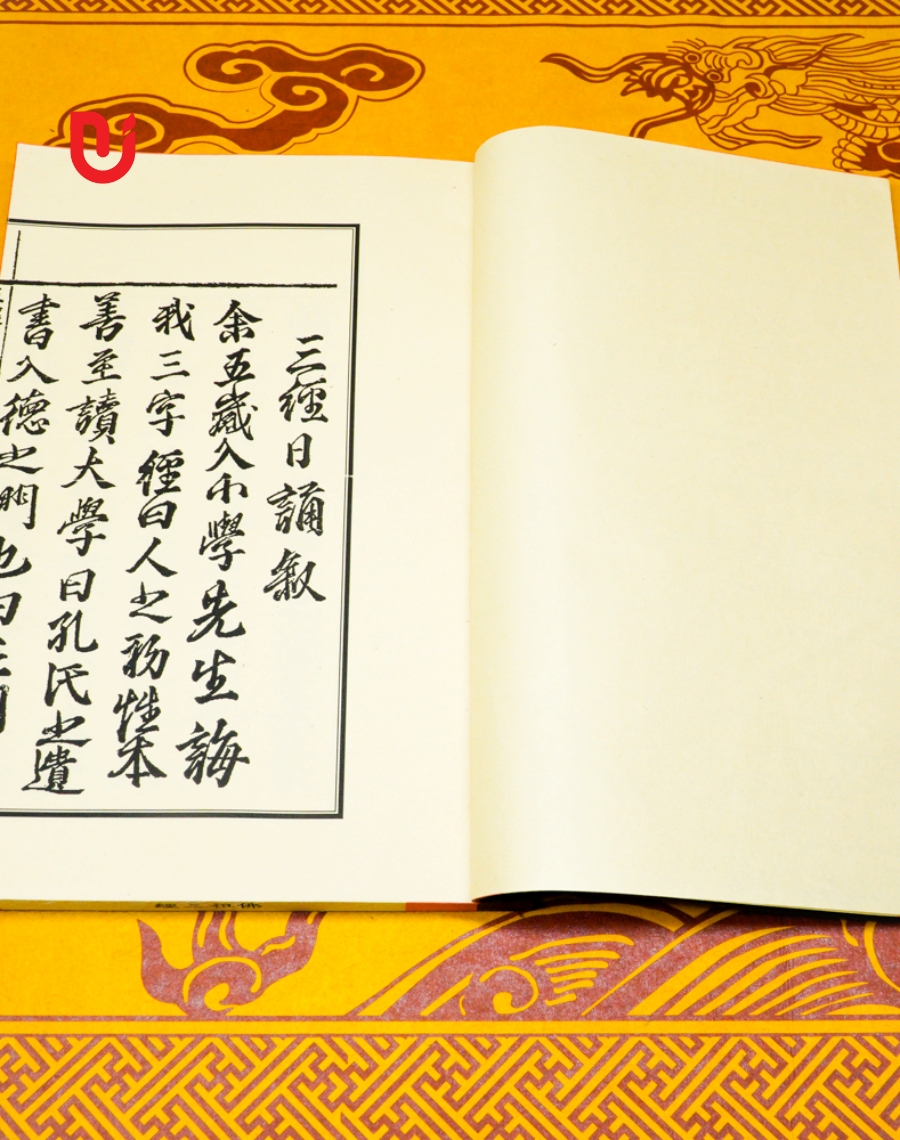 三經日誦敘
余五歲入小學先生誨
我三字經曰人之初性本
善至讀大學曰孔氏之遺
書入德之門
也